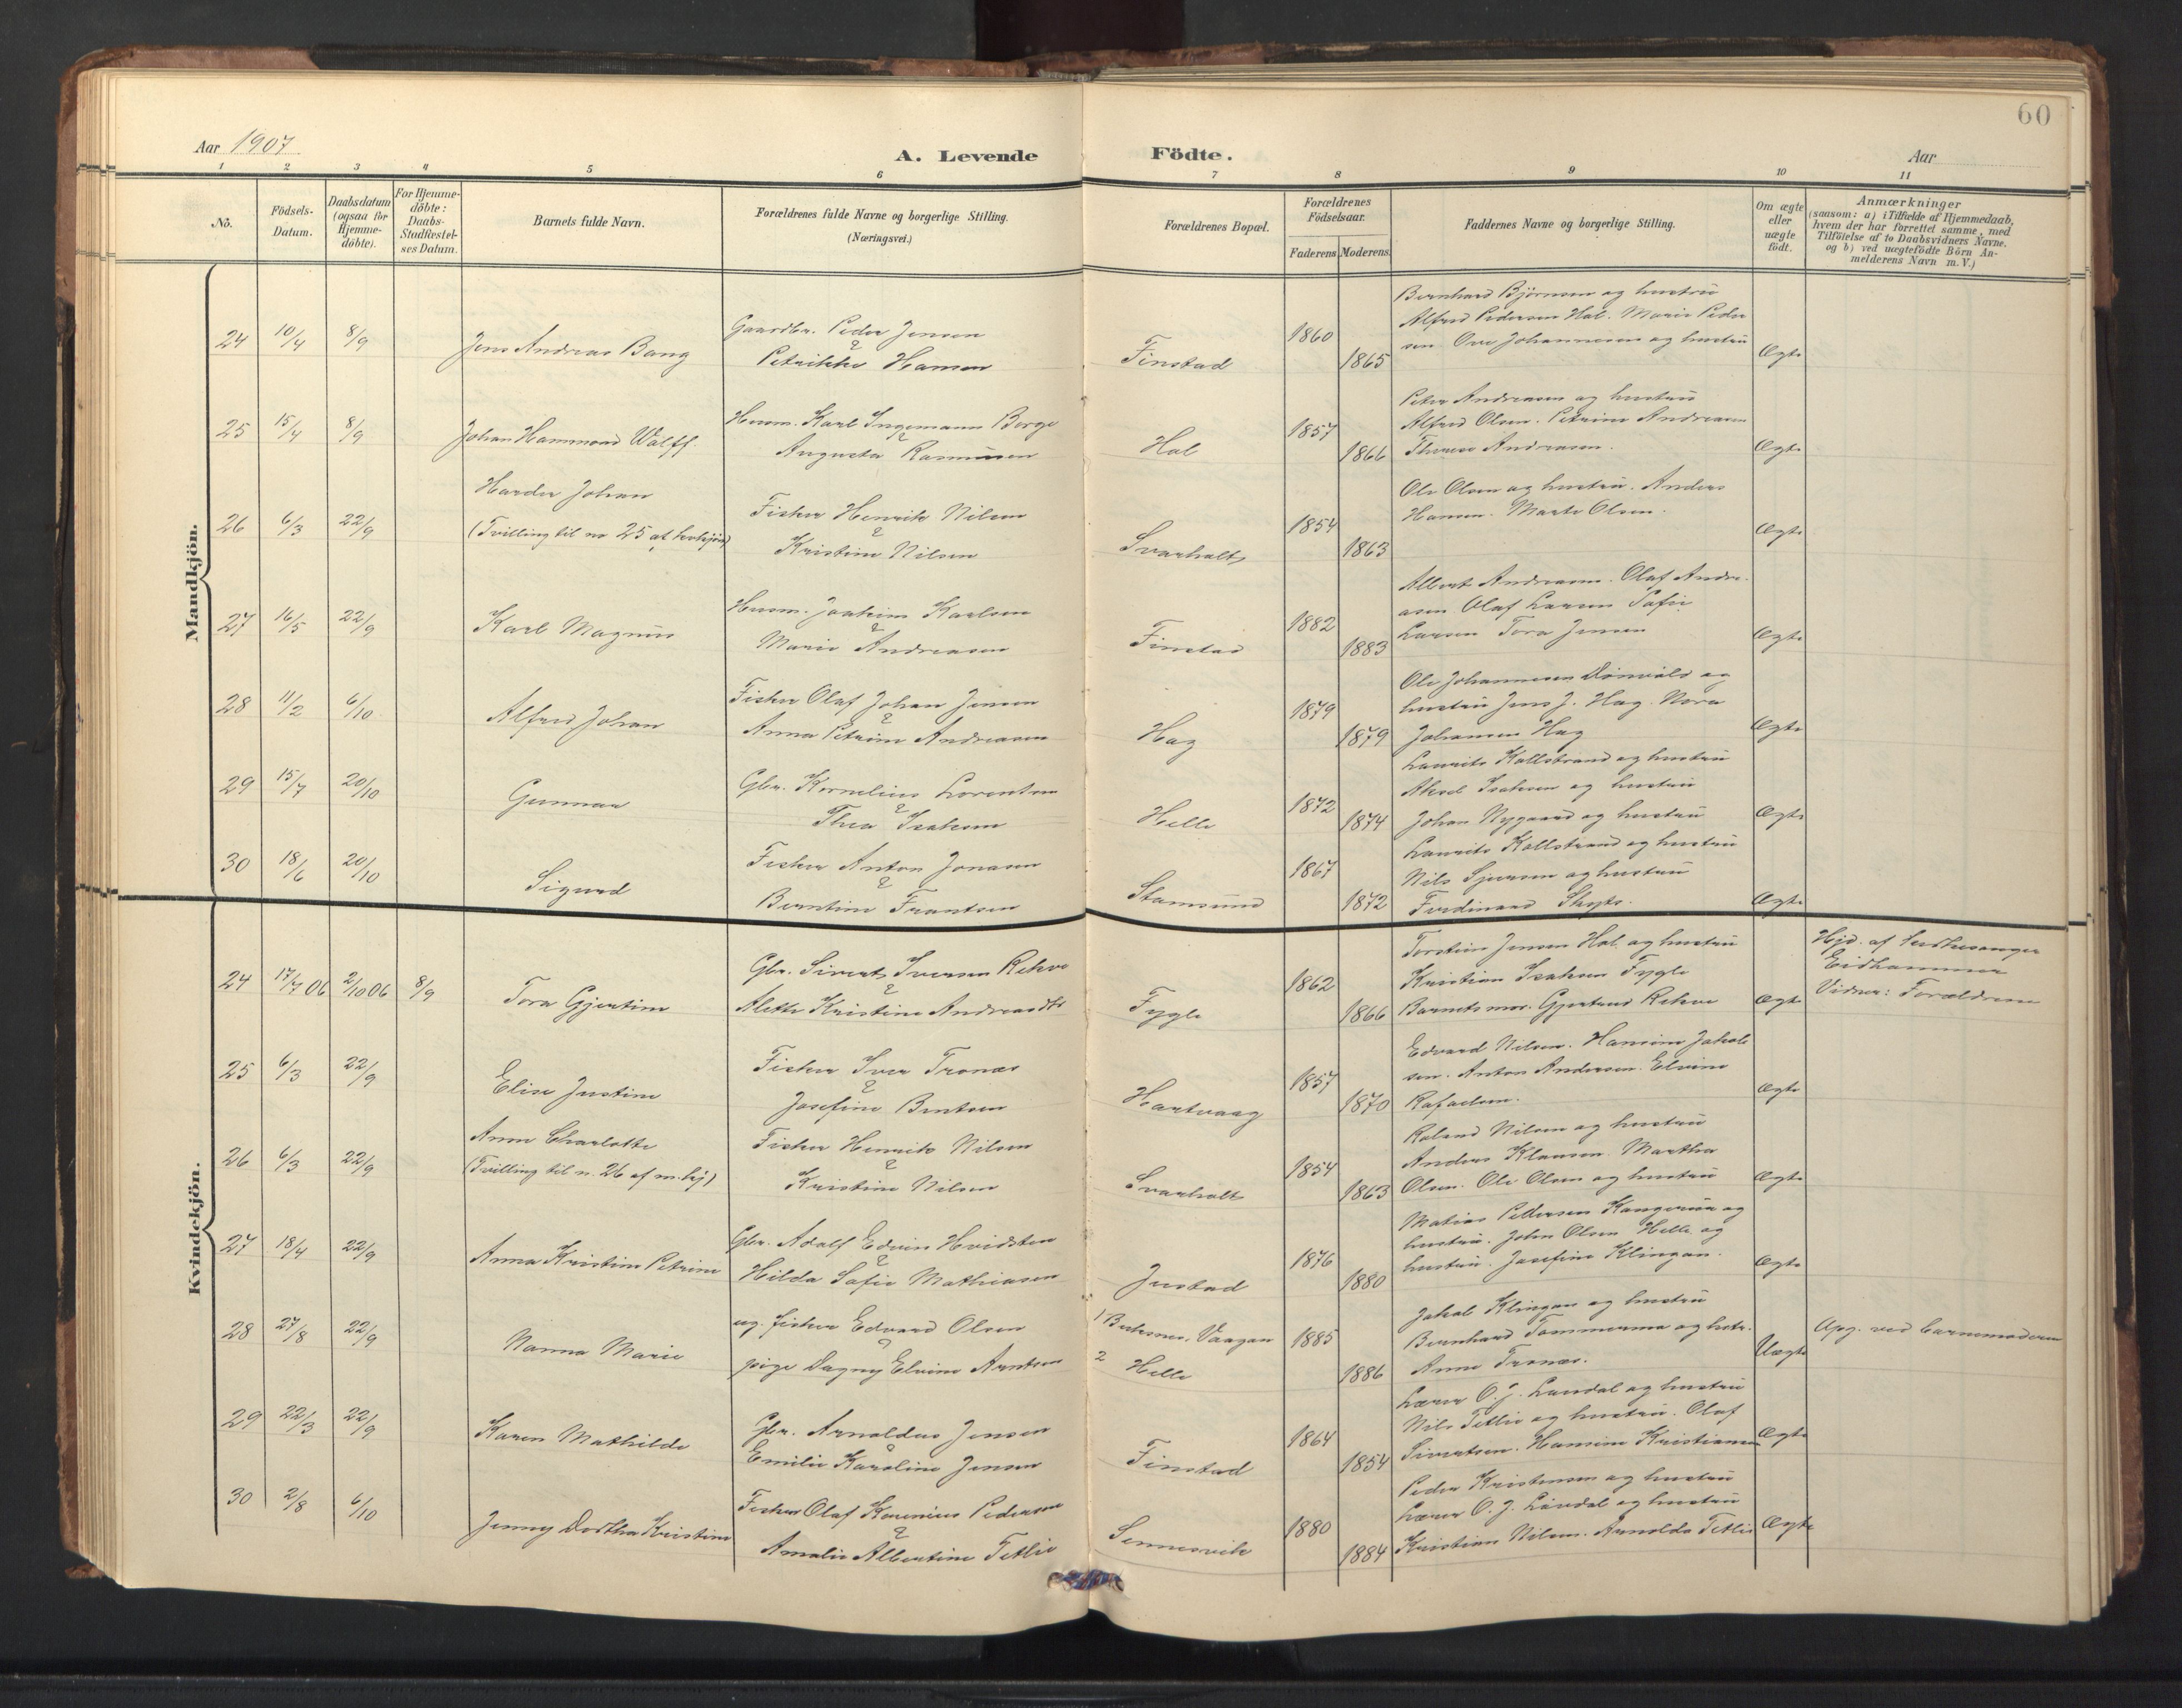 60
Aar 1907
A. Levende Födte.
Aar
1 2 3 4 5 6 7 8 9 10 11
No.
Födsels-
Datum.
Daabsdatum
(ogsaa for
Hjemme-
döbte).
For Hjemme-
döbte:
Daabs-
Stadfæstel-
ses Datum.
Barnets fulde Navn.
Forældrenes fulde Navne og borgerlige Stilling.
(Næringsvei.)
Forældrenes Bopæl.
Forældrenes
Födselsaar.
Faderens
Moderens
Faddernes Navne og borgerlige Stilling.
Om ægte
eller
uægte
födt.
Anmærkninger
(saasom: a) i Tilfælde af Hjemmedaab,
hvem der har forrettet samme, med
Tilföielse af to Daabsvidners Navne.
og b) ved uægtefödte Börn An-
melderens Navn m. V.)
Mandkjön.
24 10/4 8/9
Jens Andreas Bang
Gaardbr. Peder Jensen
&
Petrikke Hansen
Finstad
1860
1865
Bernhard Björnsen og hustru
Alfred Pedersen Hol. Marie Peder
sen Ove Johannesen og hustru
Ægte
25 15/4 8/9
Johan Hammond Wolff.
Husm. Karl Ingemann Berge
&
Augusta Rasmussen
Hol
1857
1866
Peter Andreasen og hustru
Alfred Olsen. Petrine Andreasen
Therese Andreasen.
Ægte
26 6/3 22/9
Harder Johan
(Tvilling til no 25 af kvkjön)
Fisker Henrik Nilsen
&
Kristine Nilsen
Svarholt
1854
1863
Ole Olsen og hustru. Anders
Hansen. Marte Olsen.
Ægte
27 16/5 22/9
Karl Magnus
Husm. Joakim Karlsen
&
Marie Andreasen
Finstad
1882
1883
Albert Andreasen. Olaf Andre-
asen Olaf Larsen Sofie
Larsen Tora Jensen
Ægte
28 11/2 6/10
Alfred Johan
Fisker Olaf Johan Jensen
&
Anna Petrine Andreasen
Hag
1879
1879
Ole Johannesen og
hustru Jens J. Hag. Nora
Johansen Hag
Ægte
29 15/7 20/10
Gunnar
Gbr. Kornelius Lorentsen
&
Thea Isaksen
Helle
1872
1874
Laurits Kollstrand og hustru
Aksel Isaksen og hustru
Johan Nygaard og hustru
Ægte
30 18/6 20/10
Sigurd
Fisker Anton Jonasen
&
Berntine Frantsen
Stamsund
1867
1872
Laurits Kollstrand og hustru
Nils Sjursen og hustru
Ferdinand
Ægte
Kvindekjön.
24 17/7 06 2/10 06 8/9
Tora Gjertine
Gbr. Sivert Iversen Rekve
&
Alette Kristine
Fygle
1862
1866
Torstein Jensen Hol og hustru
Kristian Isaksen Fygle
Barnets mor. Gjertrud Rekve
Ægte
Hjd. af
Eidhammer
Vidner: Forældrene
25 6/3 22/9
Elise Justine
Fisker Iver Tronas
&
Josefine Bentsen
Hartvaag
1857
1870
Edvard Nilsen. Hansine Jakob
sen. Anton Andersen. Elvine
Rafaelsen.
Ægte
26 6/3 22/9
Anne Charlotte
(Tvilling til n. 26 af m. kj)
Fisker Henrik Nilsen
&
Kristine Nilsen
Svarholt
1854
1863
Roland Nilsen og hustru
Anders Klausen. Martha
Olsen. Ole Olsen og hustru
Ægte
27 18/4 22/9
Anna Kristine Petrine
Gbr. Adolf Edvin Hvidsten
&
Hilda Sofie Mathiasen
Justad
1876
1880
Matias Pedersen og
hustru. John Olsen Helle og
hustru. Josefine Klingan.
Ægte
28 27/8 22/9
Nanna Marie
ug. fisker Edvard Olsen
&
pige Dagny Elvine Arntsen
1 Vaagan
2 Helle
1885
1886
Jakob Klingan og hustru
Bernhard Tommermo og hstr.
Anna Tronas.
Uægte
Opg. ved barnemoderen
29 22/3 22/9
Karen Mathilde
Gbr. Arnoldus Jensen
&
Emilie Karoline Jensen
Finstad
1864
1854
Lærer O. J. Lauvdal og hustru
Nils Tetlie og hustru. Olaf
Sivertsen. Hansine Kristiansen
Ægte
30 2/8 6/10
Jenny Dorthea Kristine
Fisker Olaf Korenius Pedersen
&
Amalie Albertine Tetlie
Sennesvik
1880
1884
Peder Kristensen og hustru
Lærer O. J. Lauvdal og hustru
Kristian Nilsen. Arnolda Tetlie
Ægte